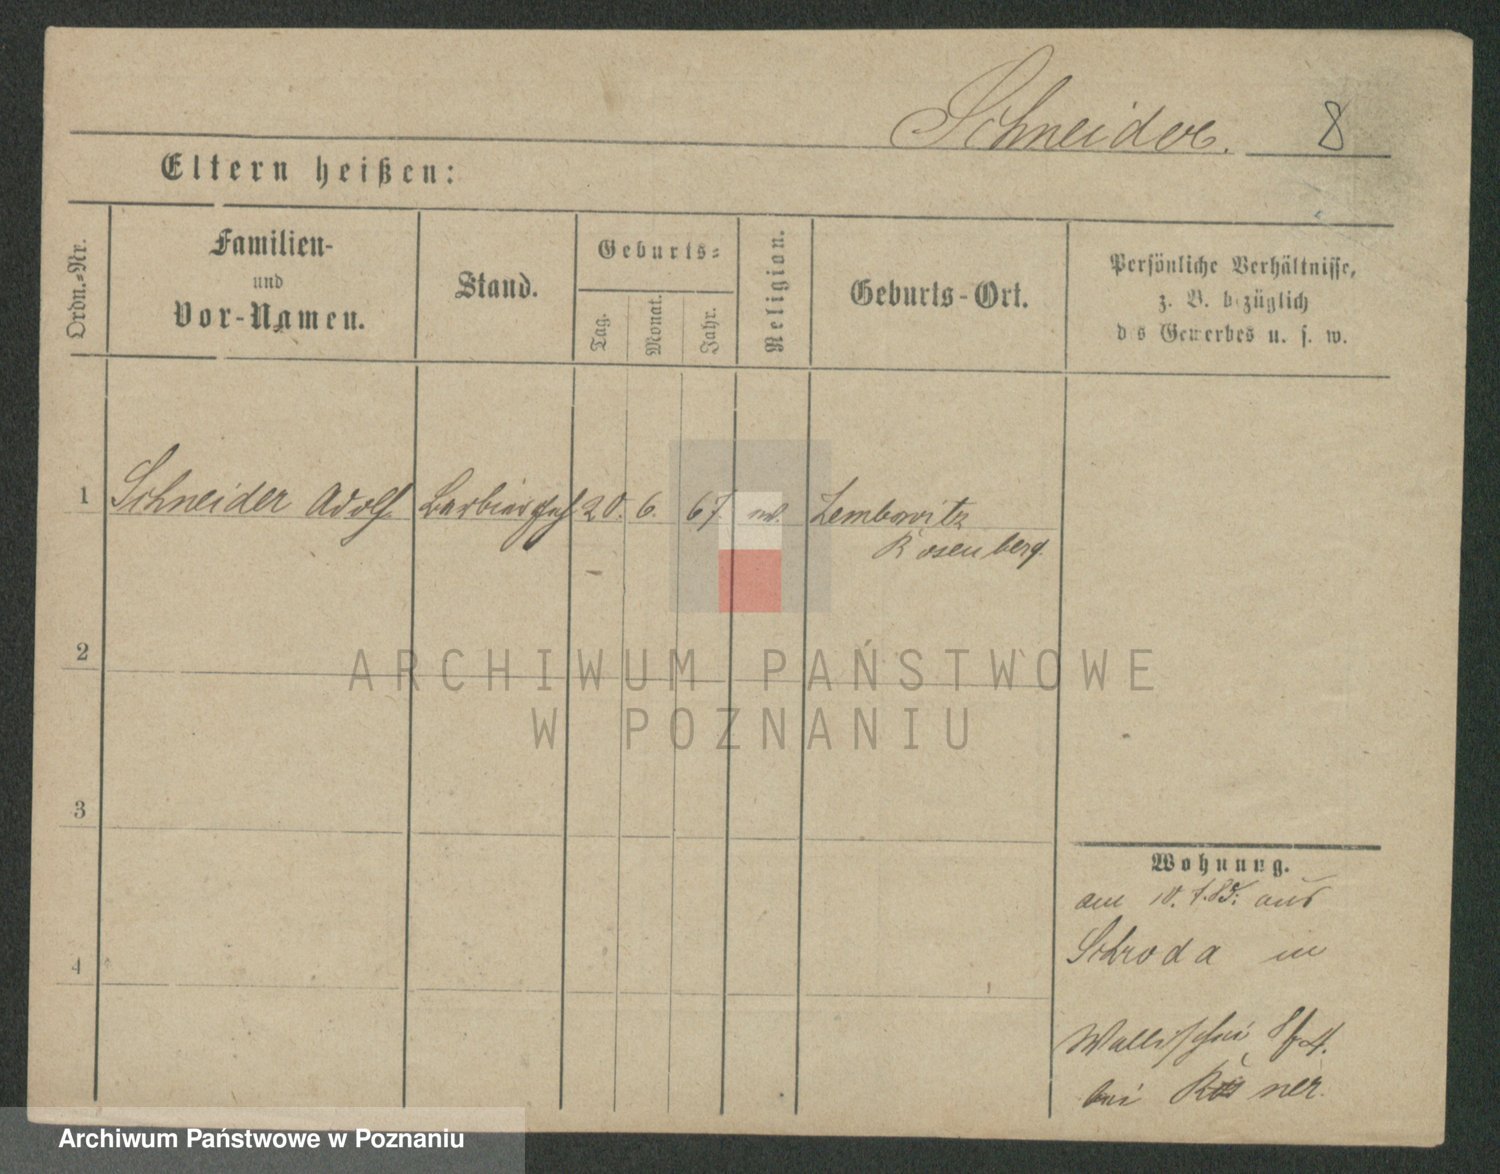 Schneider. 8
Eltern heißen:
Ordn.=Nr.
Familien-
und
Vor-Namen.
Stand.
Geburts=
Tag.
Monat.
Jahr.
Religion.
Geburts-Ort.
Persönliche Verhältnisse,
z. B. bezüglich
des Gewerbes u. s. w.
1 Schneider Adolf Barbiergeh 20. 6. 67. Lembowitz
Rosenberg.
2
3
4
Wohnung.
am 10. 7. 85. aus
Schroda in
Wallischei
bei Rösner.
ARCHIWUM PAŃSTWOWE
W POZNANIU
Archiwum Państwowe w Poznaniu